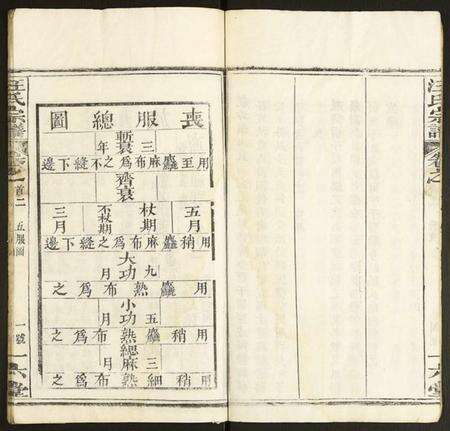 汪氏宗譜
卷之
六堂
喪服總圖
斬衰
三年
用至麤麻布為之不縫下邊
齊衰
五月
杖期
不杖期
三月
用稍麤麻布為之縫下邊
大功
九月
用麤熟布為之
小功
五月
用稍麤熟布為之
緦麻
三月
用稍細熟布為之
汪氏宗譜
卷之
首二
五服圖
一號
六堂